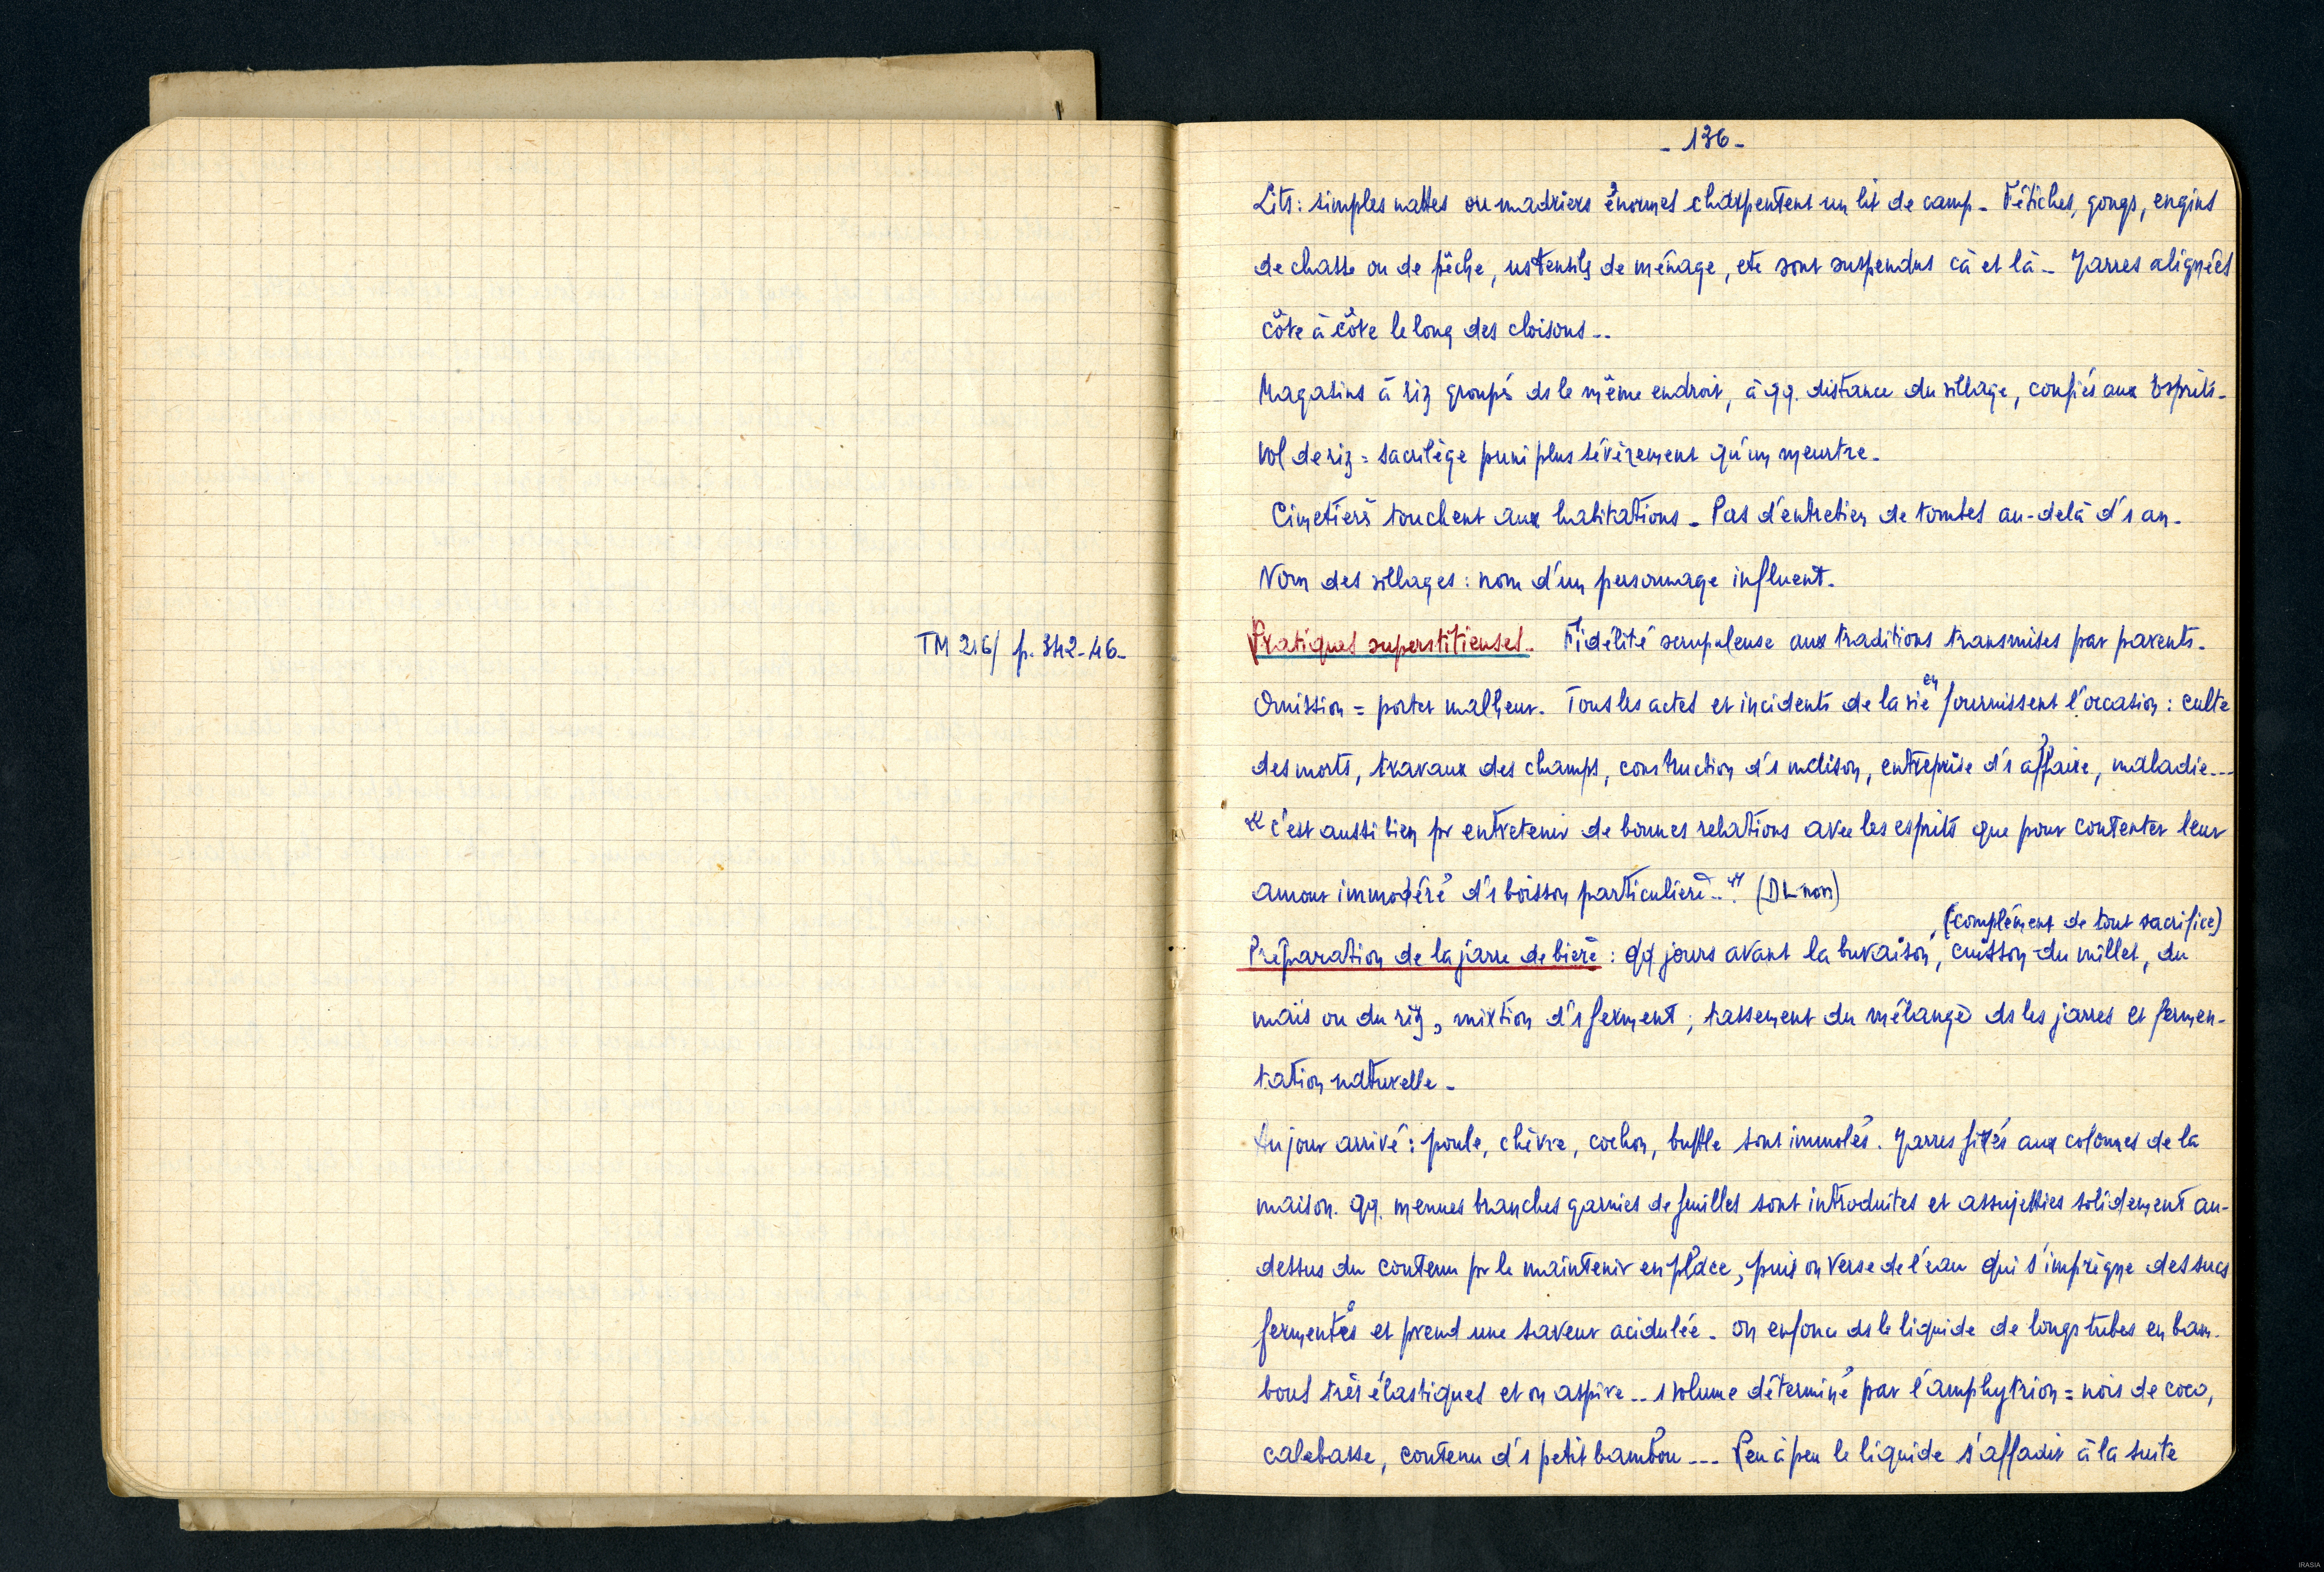 - 136 -
Lits : simples nattes ou madriers énormes charpentent un lit de camp - Fétiches, gongs, engins
de chasse ou de pêche, ustensiles de ménage, etc sont suspendus cà et là - Jarres alignées
côte à côte le long des cloisons...
Magasins à riz groupés ds le même endroit, à qq. distance du village, confiés aux Esprits -
Vol de riz = sacrilège puni plus sévèrement qu'un meurtre -
Cimetières touchent aux habitations - Pas d'entretien de tombes au-delà d'1 an -
Nom des villages : nom d'un personnage influent -
TM 216/ p. 342-46 -
Pratiques superstitieuses - Fidélité scrupuleuse aux traditions transmises par parents -
Omission = porter malheur - Tous les actes et incidents de la vie en fournissent l'occasion : culte
des morts, travaux des champs, construction d'1 maison, entreprise d'1 affaire, maladie...
"c'est aussi bien pr entretenir de bonnes relations avec les esprits que pour contenter leur
amour immodéré d'1 boisson particulière..." (DL non)
(complément de tout sacrifice)
Préparation de la jarre de bière : qq. jours avant la buvaison, cuisson du millet, du
maïs ou du riz, mixtion d'1 ferment ; tassement du mélange ds les jarres et fermen-
tation naturelle -
Au jour arrivé : poule, chèvre, cochon, buffle sont immolés. Jarres fixées aux colonnes de la
maison. Qq. menues branches garnies de feuilles sont introduites et assujetties solidement au-
dessus du contenu pr le maintenir en place, puis on verse de l'eau qui s'imprègne des sucs
fermentés et prend une saveur acidulée - On enfonce ds le liquide de longs tubes en bam-
bous très élastiques et on aspire.. 1 volume déterminé par l'amphytrion = noix de coco,
calebasse, contenu d'1 petit bambou... Peu à peu le liquide s'affadit à la suite
IRASIA